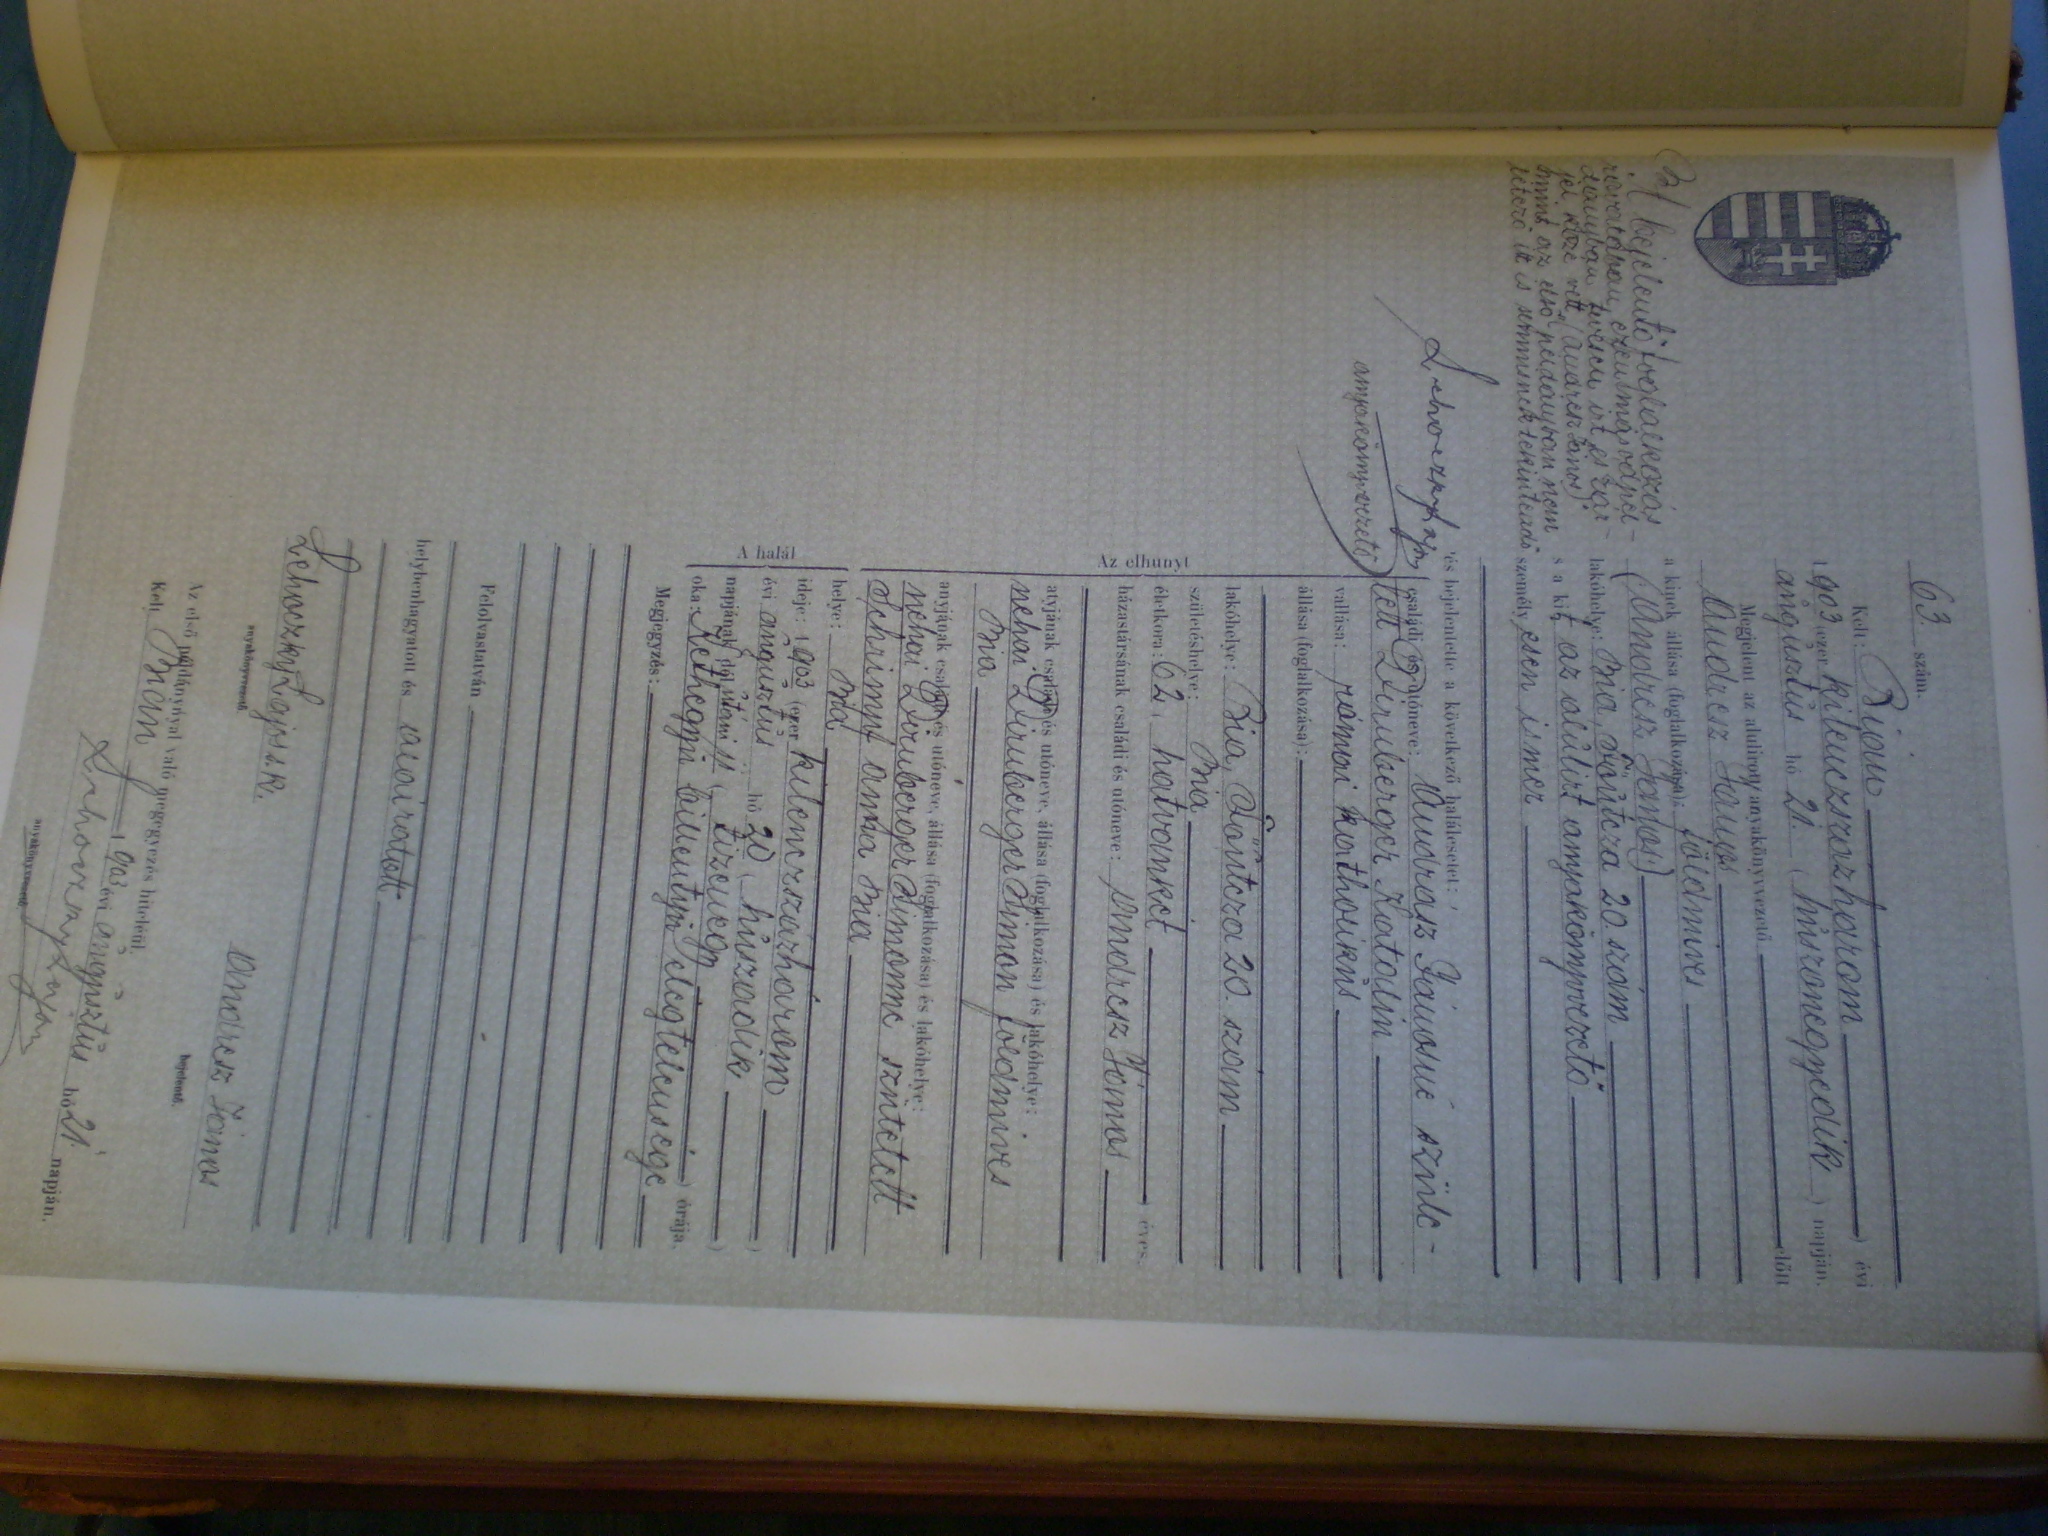 63. szám.
Kelt: Bián
1903 (ezer kilenczszázhárom) évi
augusztus hó 21. (huszonegyedik) napján.
Megjelent az alulirott anyakönyvvezető előtt
Andresz János
a kinek állása (foglalkozása): földmives
(Andresz János)
lakóhelye: Bia, Főutcza 20. szám
s a kit az alulirt anyakönyvvezető
személyesen ismer
A bejelentő
és bejelentette a következő halálesetet:
családi és utóneve: Andrász Jánosné szüle-
tett Dirnberger Katalin
vallása: római katholikus
állása (foglalkozása):
lakóhelye: Bia, Főutcza 20. szám
születéshelye: Bia
életkora: 62 (hatvankét) éves.
házastársának családi és utóneve: Andresz Tamás
Az elhunyt
atyjának családi és utóneve, állása (foglalkozása) és lakóhelye:
néhai Dirnberger Simon földmives
Bia
anyjának családi és utóneve, állása (foglalkozása) és lakóhelye:
néhai Dirnberger Simonné született
Schrimpf Anna Bia
A halál
helye: Bia
ideje: 1903 (ezer kilenczszázhárom)
évi augusztus hó 20 (huszadik)
napjának d. utáni 11 (tizenegy) órája.
oka: Kéthegyü billentyü elégtelensége
Megjegyzés:
Felolvastatván
helybenhagyatott és aláiratott
Lehoczky Lajos s. k.
anyakönyvvezető.
Andresz János
bejelentő.
Az első példánynyal való megegyezés hiteléül.
Kelt, Bián 1903 évi augusztus hó 21. napján.
Lehoczky Lajos
anyakönyvvezető.
Lehoczky Lajos
anyakönyvvezető